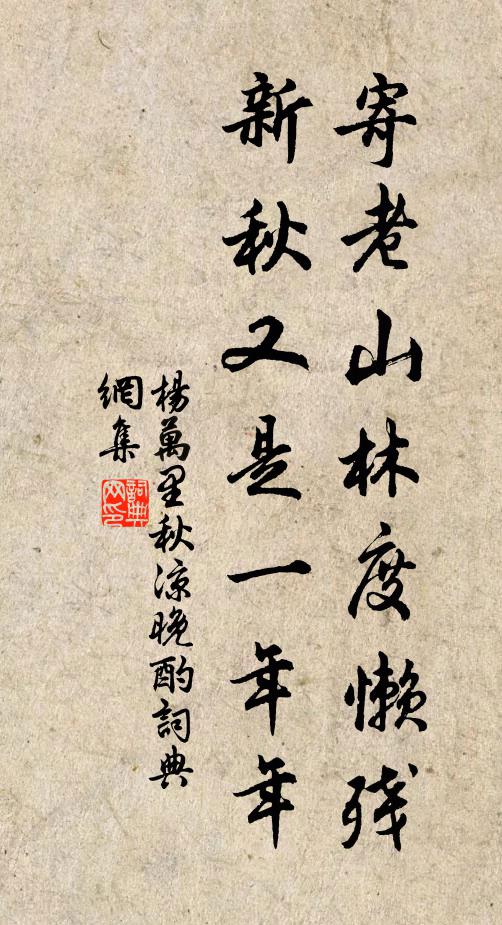 寄老山林度懒残
新秋又是一年年
楊萬里秋涼晚酌詞典
網集
詞典
网印